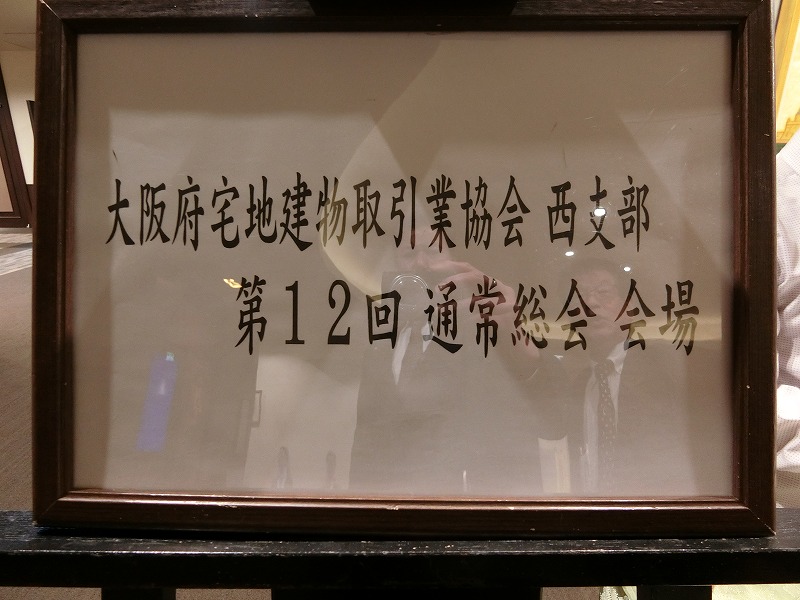 大阪府宅地建物取引業協会 西支部
第12回 通常総会 会場